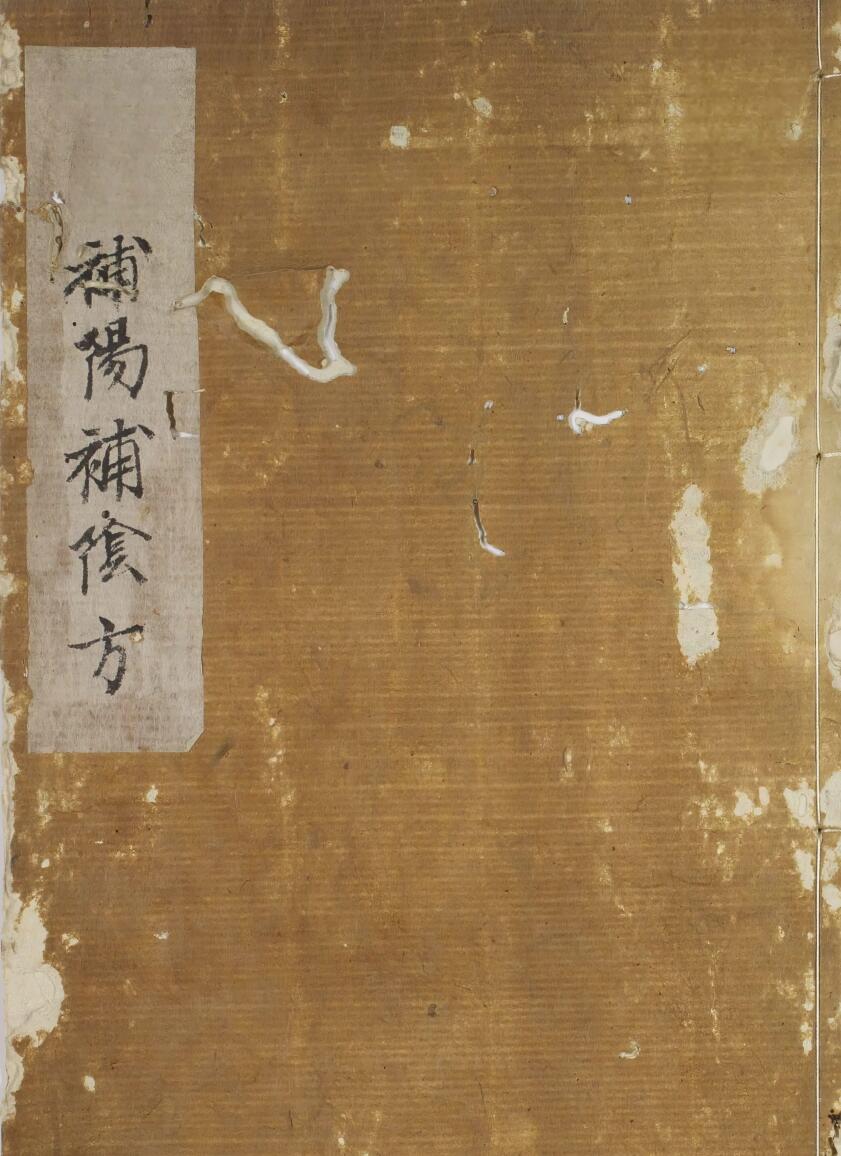 補陽補陰方